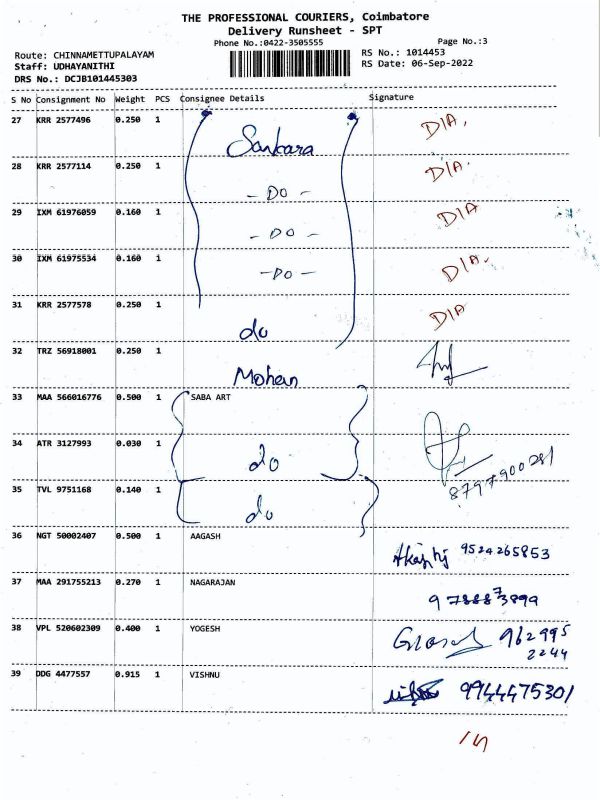 THE PROFESSIONAL COURIERS, Coimbatore
Delivery Runsheet - SPT
Phone No.:0422-3505555 Page No.:3
Route: CHINNAMETTUPALAYAM RS No.: 1014453
Staff: UDHAYANITHI RS Date: 06-Sep-2022
DRS No.: DCJB101445303
S No Consignment No Weight PCS Consignee Details Signature
27 KRR 2577496 0.250 1 Sankara DIA.
28 KRR 2577114 0.250 1 - DO - DIA.
29 IXM 61976059 0.160 1 - DO - DIA
30 IXM 61975534 0.160 1 - DO - DIA.
31 KRR 2577578 0.250 1 do DIA
32 TRZ 56918001 0.250 1 Mohan
33 MAA 566016776 0.500 1 SABA ART
34 ATR 3127993 0.030 1 do
35 TVL 9751168 0.140 1 do
36 NGT 50002407 0.500 1 AAGASH 9524265853
37 MAA 291755213 0.270 1 NAGARAJAN
38 VPL 520602309 0.400 1 YOGESH 962995
2244
39 DDG 4477557 0.915 1 VISHNU 9944475301